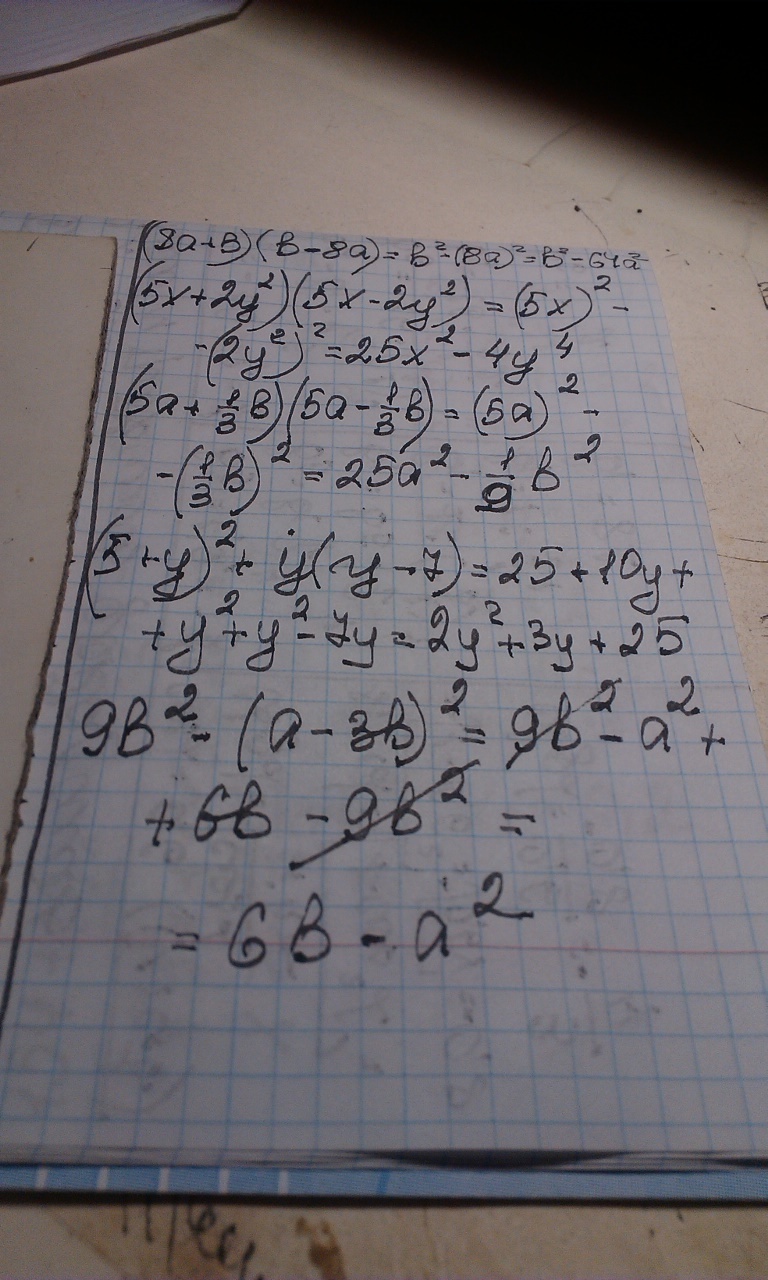 (8a+b)(b-8a)=b²-(8a)²=b²-64a²
(5x+2y²)(5x-2y²)=(5x)²-
-(2y²)²=25x²-4y⁴
(5a+1/3b)(5a-1/3b)=(5a)²-
-(1/3b)²=25a²-1/9b²
(5+y)²+y(y-7)=25+10y+
+y²+y²-7y=2y²+3y+25
9b²-(a-3b)²=9b²-a²+
+6b-9b²=
=6b-a²